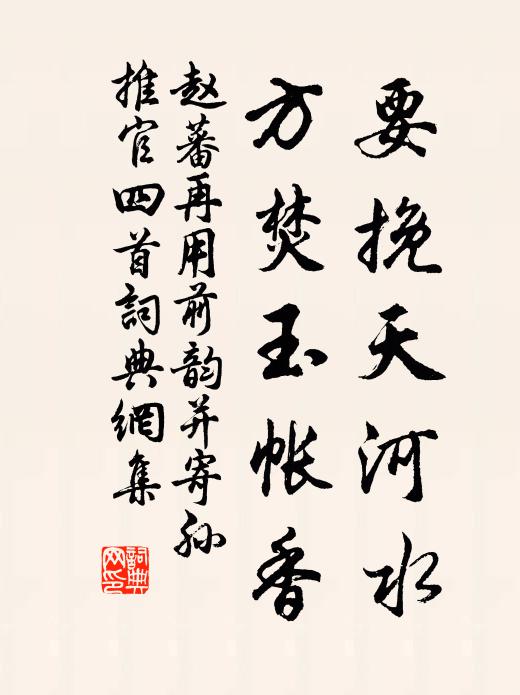 要挽天河水
方焚玉帐香
赵蕃再用前韵并寄孙
推官四首詞典網集
詞典
网印